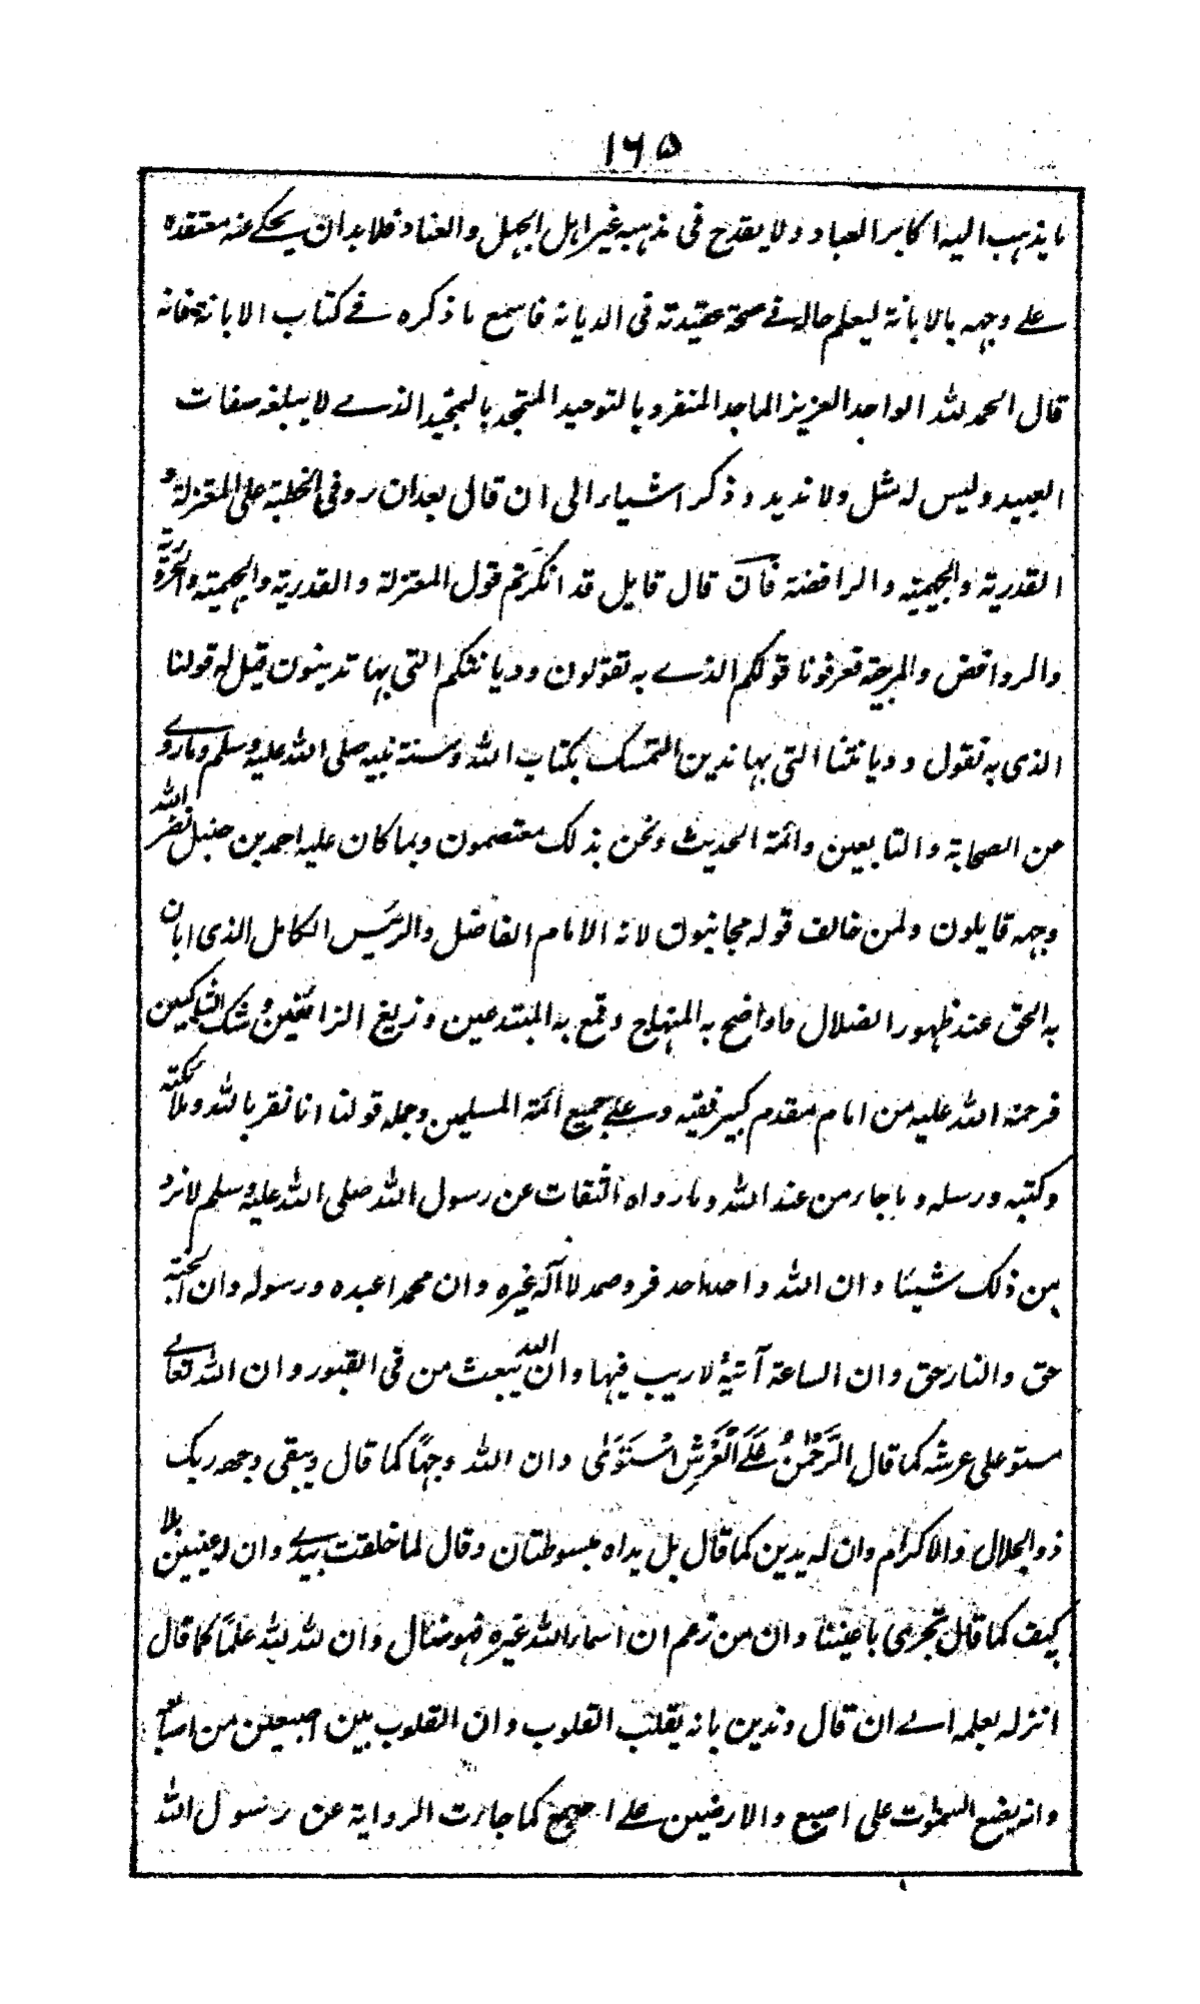 ١٦٥
ما يذهب اليه اكابر العباد ولا يقدح فى مذهبه غير اهل الجهل والعناد فلابد ان يحكے عنه معتقده
علے وجهه بالابانة ليعلم حاله فے صحة عقيدته فى الديانة فاسمع ما ذكره فے كتاب الابانة فانه
قال الحمد لله الواحد العزيز الماجد المنفرد بالتوحيد المتمجد بالتمجيد الذے لا يبلغه صفات
العبيد وليس له مثل ولا نديد و ذكر اشياء الى ان قال بعد ان رد فى الخطبة على المعتزلة و
القدرية والجهمية والرافضة فان قال قايل قد انكرتم قول المعتزلة والقدرية والجهمية والحرورية
والروافض والمرجئة فعرفونا قولكم الذے به تقولون وديانتكم التى بها تدينون قيل له قولنا
الذى به نقول وديانتنا التى بها ندين التمسك بكتاب الله وسنة نبيه صلى الله عليه وسلم وما روے
عن الصحابة والتابعين وائمة الحديث ونحن بذلك معتصمون وبما كان عليه احمد بن حنبل نضر الله
وجهه قايلون ولمن خالف قوله مجانبون لانه الامام الفاضل والرئيس الكامل الذى ابان
به الحق عند ظهور الضلال واوضح به المنهاج وقمع به المبتدعين وزيغ الزائغين وشك الشاكين
فرحمة الله عليه من امام مقدم كبير فقيه وعلے جميع ائمة المسلمين وجمله قولنا انا نقر بالله وملائكته
وكتبه ورسله وما جاء من عند الله وما رواه الثقات عن رسول الله صلى الله عليه وسلم لا نرد
من ذلك شيئا وان الله واحد احد فرد صمد لا اله غيره وان محمدا عبده ورسوله وان الجنة
حق والنار حق وان الساعة آتية لا ريب فيها وان الله يبعث من فى القبور وان الله تعالے
مستو على عرشه كما قال الرَّحْمٰنُ عَلَے الْعَرْشِ اسْتَوٰى وان الله وجهًا كما قال ويبقى وجه ربك
ذو الجلال والاكرام وان له يدين كما قال بل يداه مبسوطتان وقال لما خلقت بيدے وان له عينين بلا
كيف كما قال تجرى باعيننا وان من زعم ان اسماء الله غيره فهو ضال وان لله علمًا كما قال
انزله بعلمه الے ان قال وندين بانه يقلب القلوب وان القلوب بين اصبعين من اصابع
وانه يضع السموت على اصبع والارضين علے اصبع كما جاءت الرواية عن رسول الله